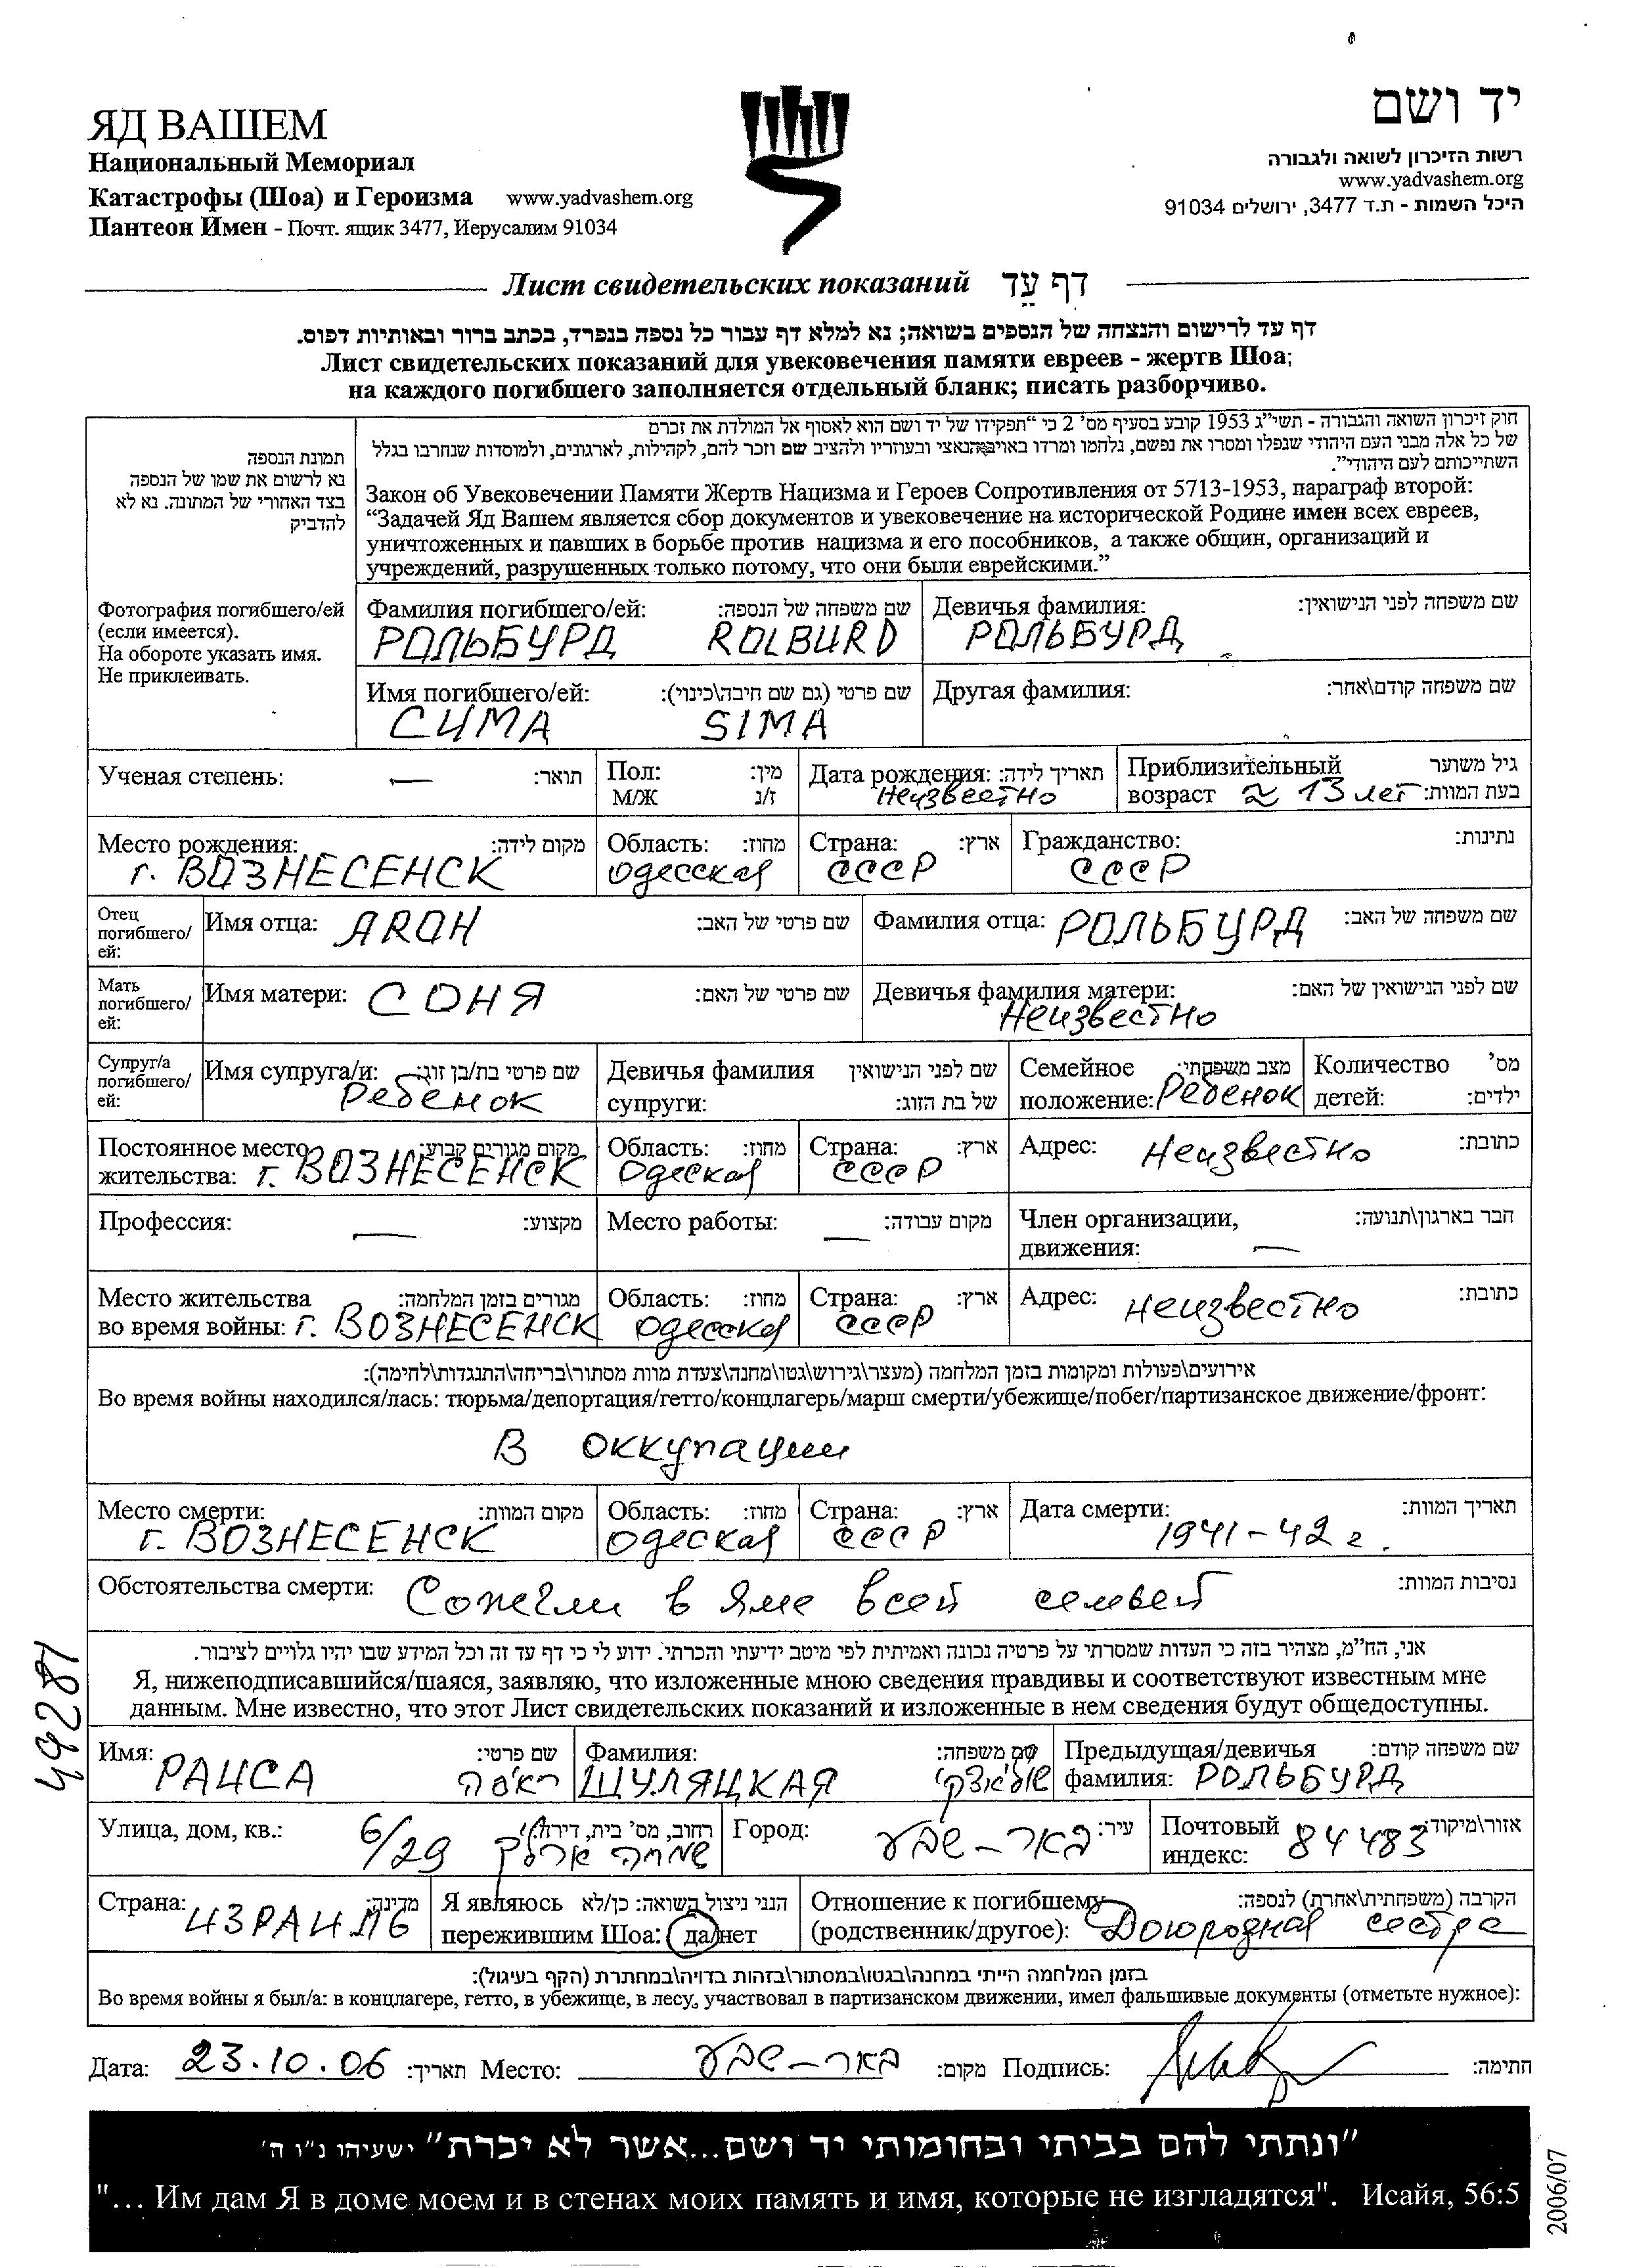 ЯД ВАШЕМ
Национальный Мемориал
Катастрофы (Шоа) и Героизма www.yadvashem.org
Пантеон Имен - Почт. ящик 3477, Иерусалим 91034
יד ושם
רשות הזיכרון לשואה ולגבורה
www.yadvashem.org
היכל השמות - ת.ד 3477, ירושלים 91034
Лист свидетельских показаний דף עֵד
דף עד לרישום והנצחה של הנספים בשואה; נא למלא דף עבור כל נספה בנפרד, בכתב ברור ובאותיות דפוס.
Лист свидетельских показаний для увековечения памяти евреев - жертв Шоа;
на каждого погибшего заполняется отдельный бланк; писать разборчиво.
תמונת הנספה
נא לרשום את שמו של הנספה
בצד האחורי של התמונה. נא לא
להדביק
Фотография погибшего/ей
(если имеется).
На обороте указать имя.
Не приклеивать.
חוק זיכרון השואה והגבורה - תשי"ג 1953 קובע בסעיף מס' 2 כי "תפקידו של יד ושם הוא לאסוף אל המולדת את זכרם
של כל אלה מבני העם היהודי שנפלו ומסרו את נפשם, נלחמו ומרדו באויב הנאצי ובעוזריו ולהציב שם וזכר להם, לקהילות, לארגונים, ולמוסדות שנחרבו בגלל
השתייכותם לעם היהודי".
Закон об Увековечении Памяти Жертв Нацизма и Героев Сопротивления от 5713-1953, параграф второй:
"Задачей Яд Вашем является сбор документов и увековечение на исторической Родине имен всех евреев,
уничтоженных и павших в борьбе против нацизма и его пособников, а также общин, организаций и
учреждений, разрушенных только потому, что они были еврейскими."
Фамилия погибшего/ей: שם משפחה של הנספה: Девичья фамилия: שם משפחה לפני הנישואין:
РОЛЬБУРД ROLBURD РОЛЬБУРД
Имя погибшего/ей: שם פרטי (גם שם חיבה\כינוי): Другая фамилия: שם משפחה קודם\אחר:
СИМА SIMA
Ученая степень: — תואר: Пол: מין: Дата рождения: תאריך לידה: Приблизительный גיל משוער
М/Ж ז/נ Неизвестно возраст ≈ 13 лет בעת המוות:
Место рождения: מקום לידה: Область: מחוז: Страна: ארץ: Гражданство: נתינות:
г. ВОЗНЕСЕНСК Одесская СССР СССР
Отец погибшего/ей: Имя отца: АRОН שם פרטי של האב: Фамилия отца: РОЛЬБУРД שם משפחה של האב:
Мать погибшего/ей: Имя матери: СОНЯ שם פרטי של האם: Девичья фамилия матери: שם לפני הנישואין של האם:
Неизвестно
Супруг/а погибшего/ей: Имя супруга/и: שם פרטי בת/בן זוג: Девичья фамилия שם לפני הנישואין Семейное מצב משפחתי: Количество מס'
Ребенок супруги: של בת הזוג: положение: Ребенок детей: ילדים:
Постоянное место מקום מגורים קבוע: Область: מחוז: Страна: ארץ: Адрес: Неизвестно כתובת:
жительства: г. ВОЗНЕСЕНСК Одеская СССР
Профессия: — מקצוע: Место работы: — מקום עבודה: Член организации, חבר בארגון\תנועה:
движения: —
Место жительства מגורים בזמן המלחמה: Область: מחוז: Страна: ארץ: Адрес: неизвестно כתובת:
во время войны: г. ВОЗНЕСЕНСК Одесская СССР
אירועים\פעולות ומקומות בזמן המלחמה (מעצר\גירוש\גטו\מחנה\צעדת מוות מסתור\בריחה\התנגדות\לחימה):
Во время войны находился/лась: тюрьма/депортация/гетто/концлагерь/марш смерти/убежище/побег/партизанское движение/фронт:
В оккупации
Место смерти: מקום המוות: Область: מחוז: Страна: ארץ: Дата смерти: תאריך המוות:
г. ВОЗНЕСЕНСК Одеская СССР 1941-42 г.
Обстоятельства смерти: Сожгли в яме всей семьей נסיבות המוות:
אני, הח"מ, מצהיר בזה כי העדות שמסרתי על פרטיה נכונה ואמיתית לפי מיטב ידיעתי והכרתי. ידוע לי כי דף עד זה וכל המידע שבו יהיו גלויים לציבור.
Я, нижеподписавшийся/шаяся, заявляю, что изложенные мною сведения правдивы и соответствуют известным мне
данным. Мне известно, что этот Лист свидетельских показаний и изложенные в нем сведения будут общедоступны.
Имя: שם פרטי: Фамилия: שם משפחה: Предыдущая/девичья שם משפחה קודם:
РАИСА ראיסה ШУЛЯЦКАЯ фамилия: РОЛЬБУРД
Улица, дом, кв.: 6/29 רחוב, מס' בית, דירה: Город: באר-שבע עיר: Почтовый אזור\מיקוד:
индекс: 84483
Страна: ИЗРАИЛЬ מדינה: Я являюсь הנני ניצול השואה: כן/לא Отношение к погибшему הקרבה (משפחתית\אחרת) לנספה:
пережившим Шоа: да/нет (родственник/другое): Двоюродная сестра
בזמן המלחמה הייתי במחנה\בגטו\במסתור\בזהות בדויה\במחתרת (הקף בעיגול):
Во время войны я был/а: в концлагере, гетто, в убежище, в лесу, участвовал в партизанском движении, имел фальшивые документы (отметьте нужное):
Дата: 23.10.06 תאריך: Место: באר-שבע מקום: Подпись: חתימה:
"ונתתי להם בביתי ובחומותי יד ושם...אשר לא יכרת" ישעיהו נ"ו ה'
"... Им дам Я в доме моем и в стенах моих память и имя, которые не изгладятся". Исайя, 56:5
49281
2006/07